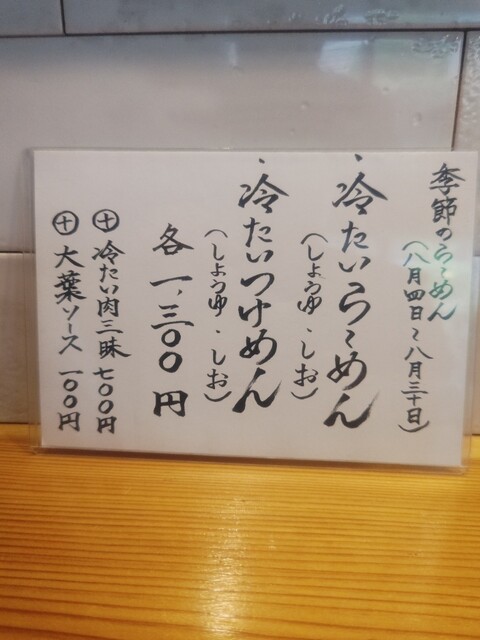 季節のらーめん
(八月四日~八月三十日)
・冷たいらーめん
(しょうゆ・しお)
・冷たいつけめん
(しょうゆ・しお)
各一、三〇〇円
㊉冷たい肉三昧 七〇〇円
㊉大葉ソース 一〇〇円